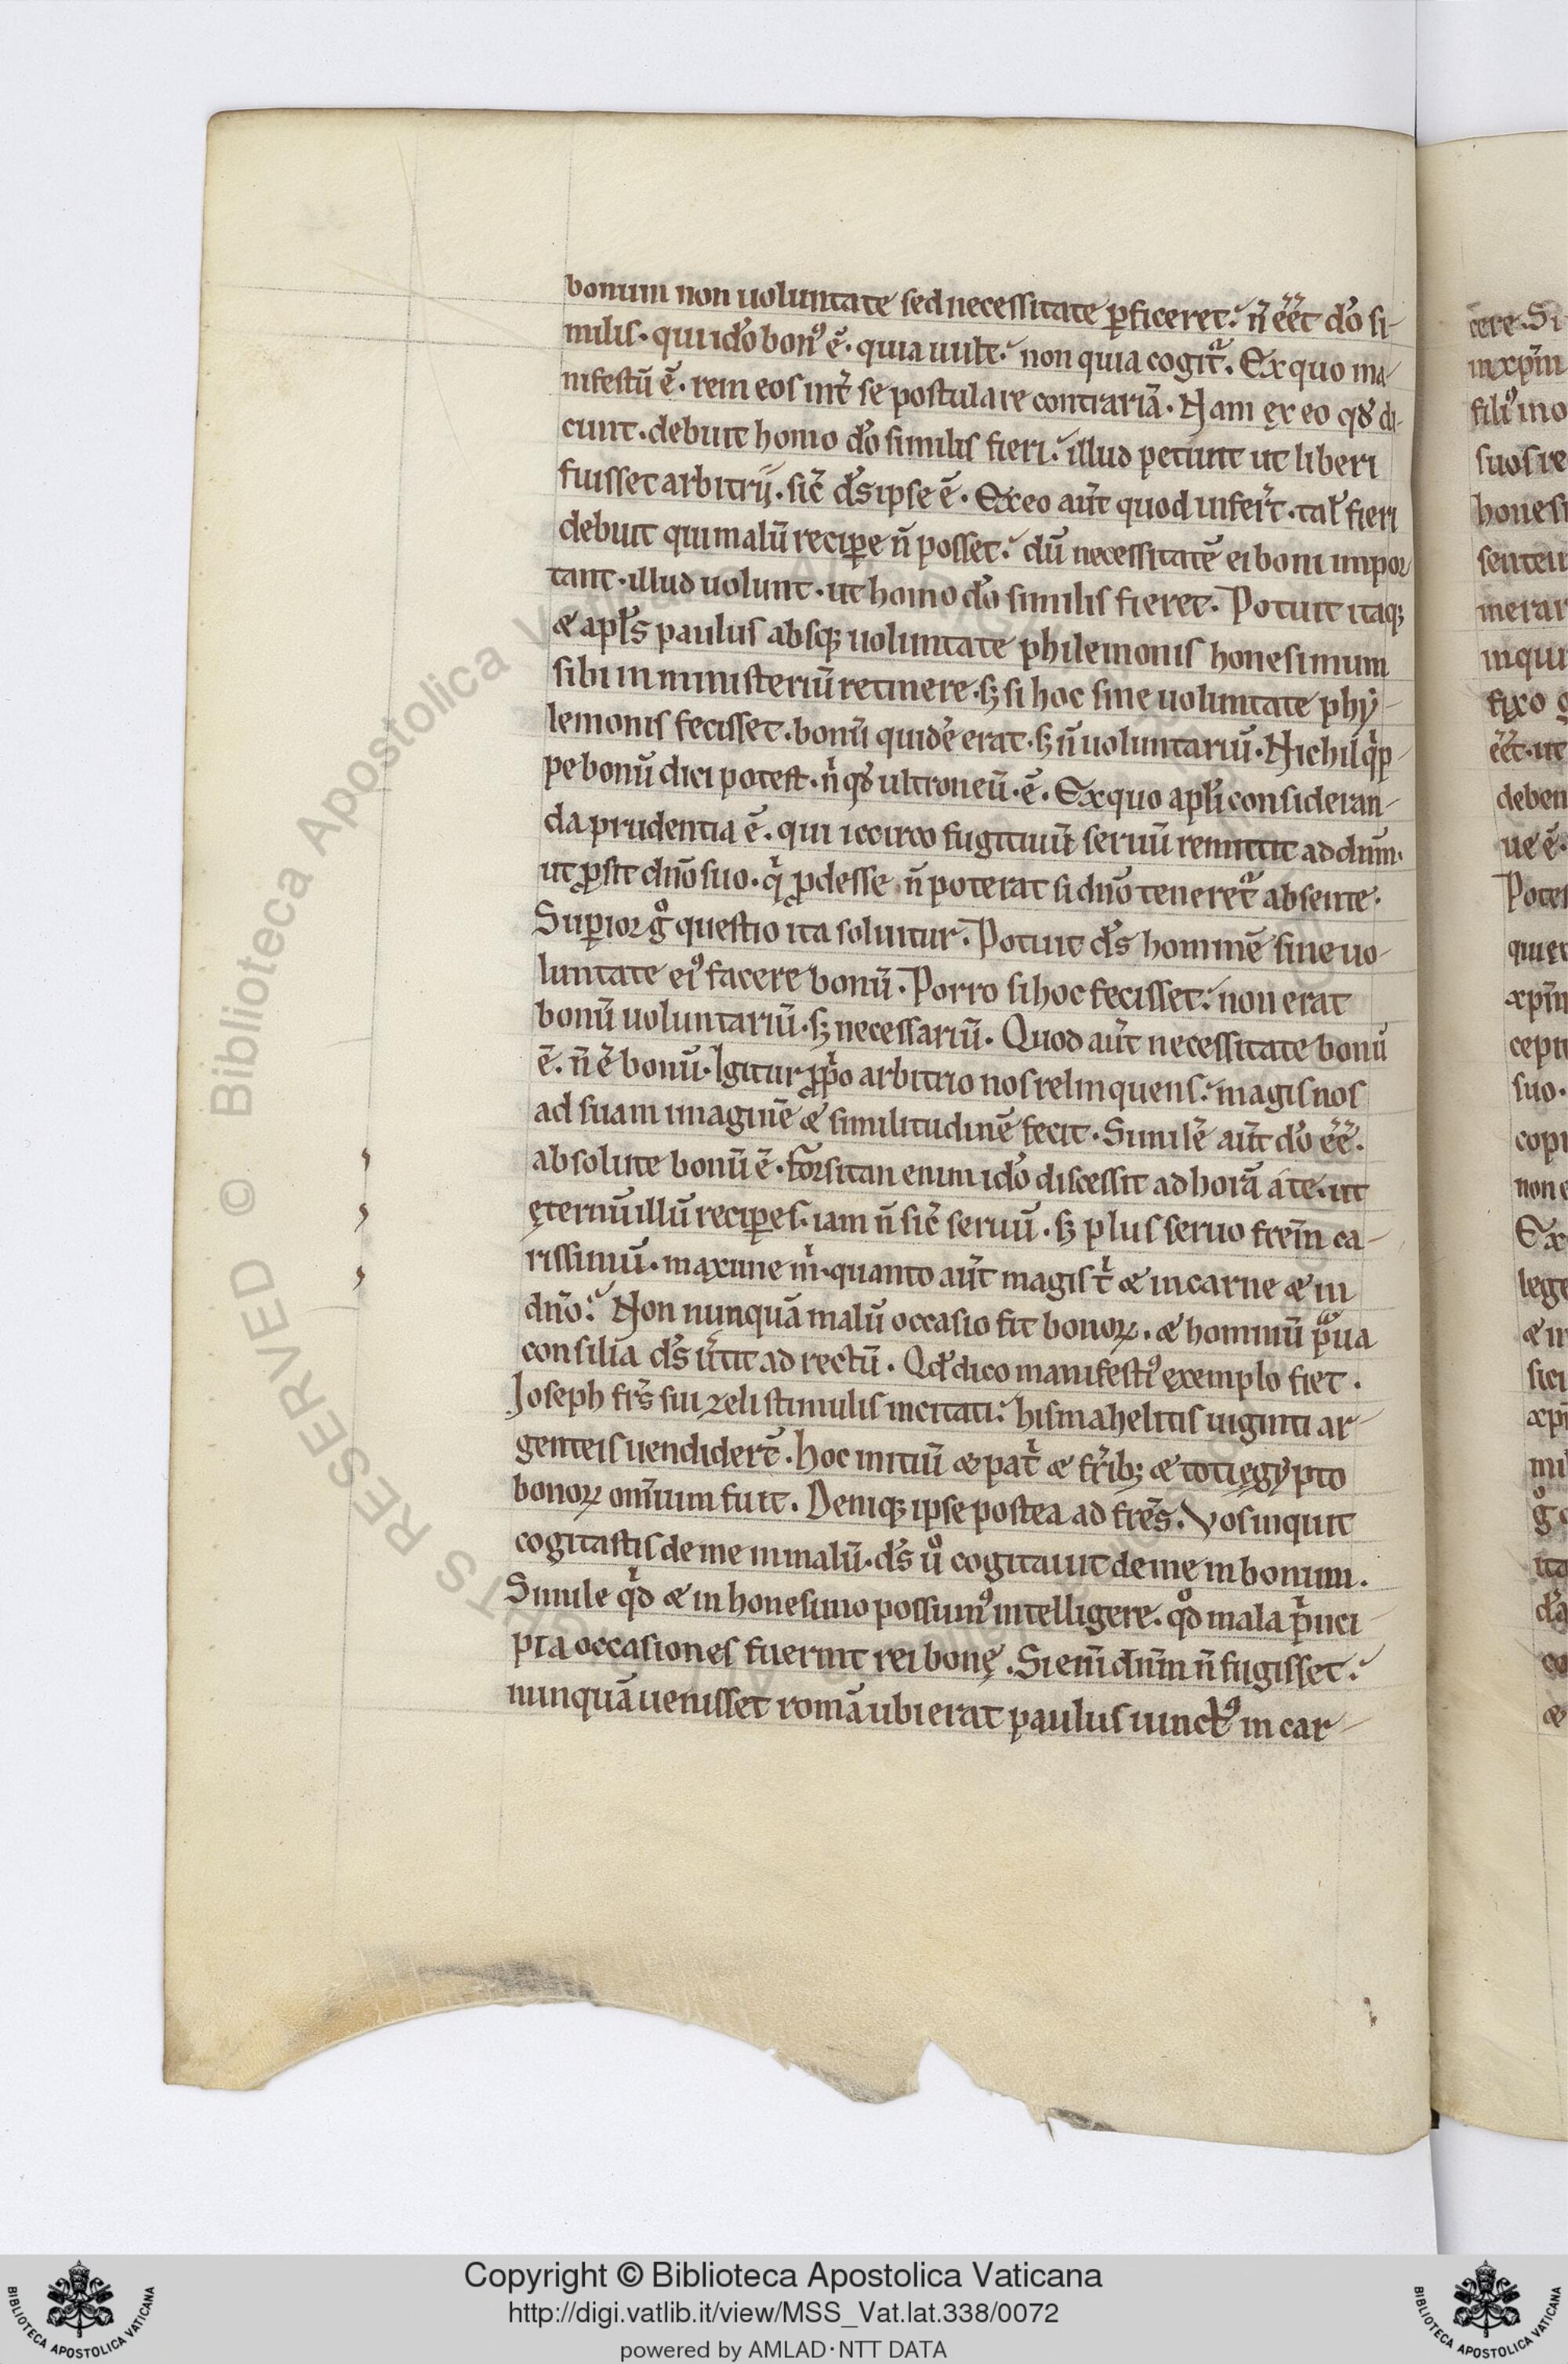 bonum non uoluntate sed necessitate ꝑficeret. n̄ eēt do̅ si-
milis. qui ido̅ bonꝰ ē. quia uult. non quia cogit᷑. Ex quo ma-
nifestū ē. rem eos int̄ se postulare contrariā. Nam ex eo qđ di-
cunt. debuit homo do̅ similis fieri. illud petunt ut liberi
fuisset arbitrij. sic̄ ds̄ ipse ē. Ex eo aut̄ quod infert̄. tal̄ fieri
debuit qui malū reciꝑe n̄ posset. dū necessitatē ei boni impor
tant. illud uolunt. ut homo do̅ similis fieret. Potuit itaqꝫ
& apl̄s paulus absqꝫ uoluntate philemonis honesimum
sibi in ministeriū retinere. sꝫ si hoc sine uoluntate phy-
lemonis fecisset. bonū quidē erat. sꝫ n̄ uoluntariū. Nichil qͥp-
pe bonū dici potest. nͥ qđ ultroneū. ē. Ex quo apl̄i consideran-
da prudentia ē. qui iccirco fugitiuū seruū remittit ad dnm̄.
ut ꝓsit dn̄o suo. qͥ ꝓdesse n̄ poterat si dn̄o teneret᷑ absente.
Suꝑior gͦ questio ita soluitur. Potuit ds̄ hominē sine uo-
luntate eiꝰ facere bonū. Porro si hoc fecisset. non erat
bonū uoluntariū. sꝫ necessariū. Quod aut̄ necessitate bonū
ē. n̄ ē bonū. Igitur ꝓpͥo arbitrio nos relinquens. magis nos
ad suam imaginē & similitudinē fecit. Similē aut̄ do̅ eē̄.
absolute bonū ē. forsitan enim ido̅ discessit ad horā a te. ut
ęternū illū reciꝑes. iam n̄ sic̄ seruū. sꝫ plus seruo frem̄ ca-
rissimū. maxime mͥ. quanto aut̄ magis tͥ & in carne & in
dn̄o. Non nunquā malū occasio fit bonoꝝ. & hominū pͣua
consilia ds̄ ūtit ad rectū. Qđ dico manifestiꝰ exemplo fiet.
Ioseph frs̄ sui zeli stimulis incitati. hismahelitis uiginti ar-
genteis uendidert̄. Hoc initiū & patͥ & fr̄ibꝫ & toti ęgypto
bonoꝝ om̄ium fuit. Deniqꝫ ipse postea ad fres̄. Vos inquit
cogitastis de me in malū. ds̄ uͦ cogitauit de me in bonum.
Simile qͥd & in honesimo possumꝰ intelligere. qͦd mala pͥnci
pia occasiones fuerint rei bonę. Si enim̄ dnm̄ n̄ fugisset.
nunquā uenisset romā ubi erat paulus uinctꝰ in car-
Copyright © Biblioteca Apostolica Vaticana
http://digi.vatlib.it/view/MSS_Vat.lat.338/0072
powered by AMLAD·NTT DATA